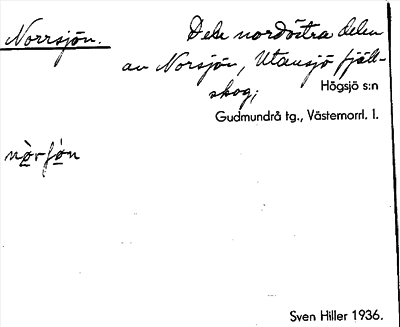 Norrsjön. Dela nordöstra delen
av Norsjön, Utansjö fjäll-
skog;
Högsjö s:n
Gudmundrå tg., Västernorrl. l.
nòrʃón
Sven Hiller 1936.